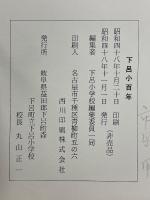 下呂小百年
昭和四十八年十月二十日　印刷
昭和四十八年十一月一日　発行（非売品）
編集者　下呂小学校編纂委員一同
印刷人　名古屋市千種区青柳町五の六
西川印刷株式会社
発行所　岐阜県益田郡下呂町森
下呂町立下呂小学校
校長　丸山正一